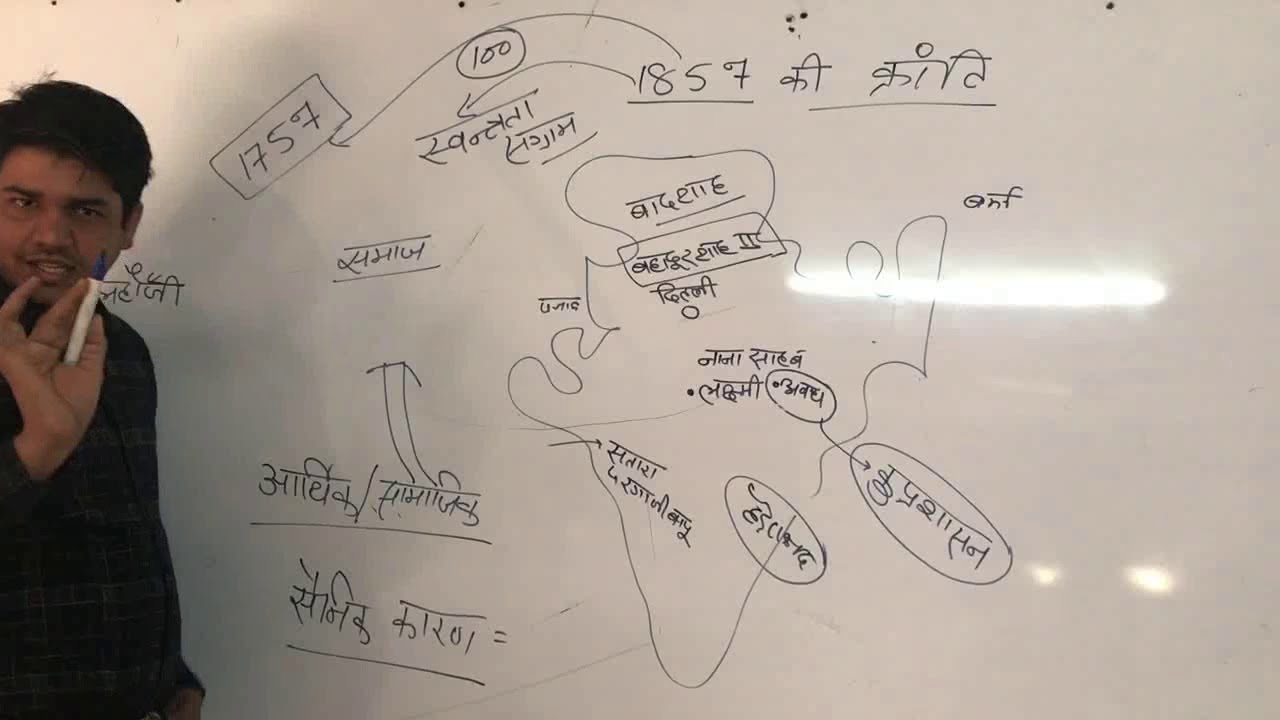 100
1857 की क्रांति
1757
स्वन्त्रता
संग्राम
बादशाह
बर्मा
समाज
बहादूरशाह II
दिल्ली
पंजाब
नाना साहब
लक्ष्मी अवध
सतारा
आर्थिक/सामाजिक
कुप्रशासन
सैनिक कारण =